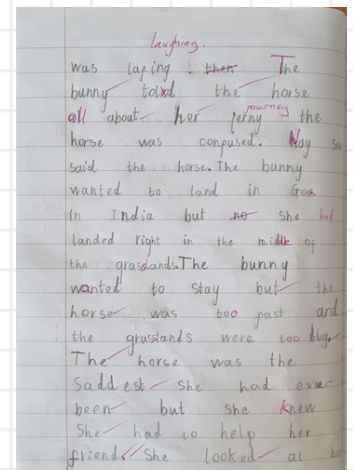 laughing.
was laping . then The
bunny told the horse
all about her jerny journey the
horse was confused. Nay so
said the horse. The bunny
wanted to land in Goa
in India but no she had
landed right in the middle of
the grasslands. The bunny
wanted to stay but the
horse was too fast and
the grasslands were too big.
The horse was the
Saddest she had ever
been but she knew
She had to help her
friend. She looked at he